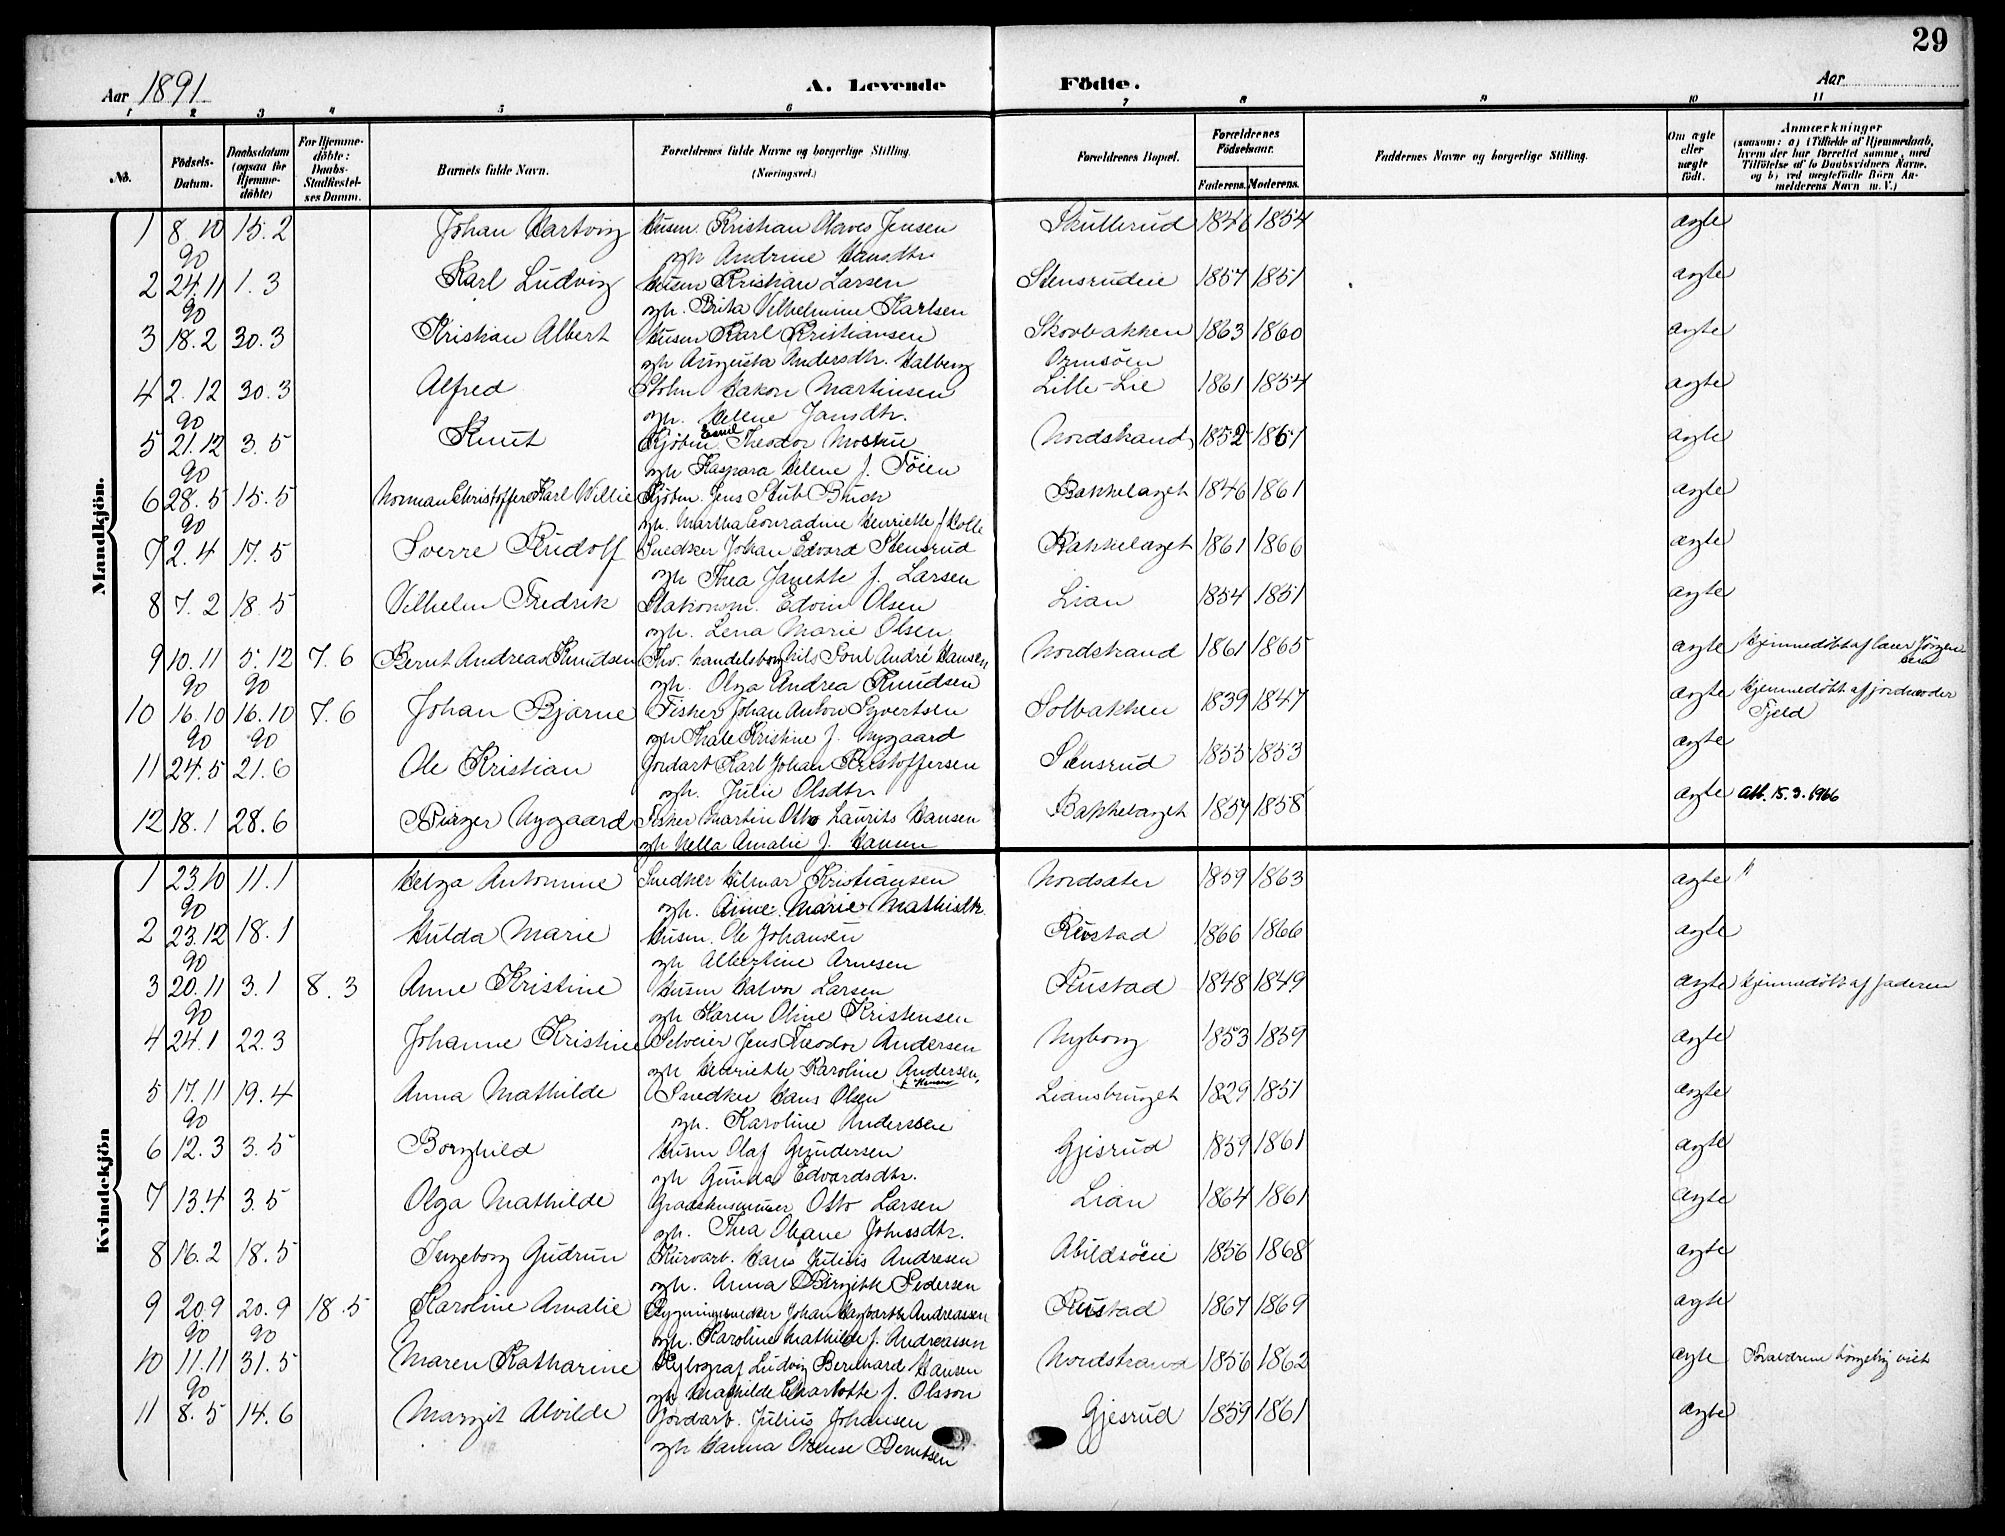 29
Aar 1891
A. Levende Födte.
Aar
1 2 3 4 5 6 7 8 9 10 11
No. Födsels-Datum. Daabsdatum (ogsaa for Hjemme-döbte) For Hjemme-döbte: Daabs-Stadfæstel-ses Datum. Barnets fulde Navn. Forældrenes fulde Navne og borgerlige Stilling. (Næringsvei.) Forældrenes Bopæl. Forældrenes Födselsaar. Faderens. Moderens. Faddernes Navne og borgerlige Stilling. Om ægte eller uægte födt. Anmærkninger (saasom: a) i Tilfælde af Hjemmedaab, hvem der har forrettet samme, med Tilföielse af to Daabsvidners Navne. og b) ved uægtefödte Börn Anmelderens Navn m. V.)
Mandkjön.
1 8.10 15.2 Johan Hartvig Husm. Kristian Olaves Jensen Skullerud 1846 1854 ægte
90 og h. Andrine Hansdtr.
2 24.11 1.3 Karl Ludvig Husm Kristian Larsen Stensrudeie 1857 1851 ægte
90 og h. Brita Vilhelmine Karlsen
3 18.2 30.3 Kristian Albert Husm Karl Kristiansen Skovbakken 1863 1860 ægte
og h Augusta Andersdtr. Halberg Ormsöen
4 2.12 30.3 Alfred Hakon Martinsen Lille-Lie 1861 1854 ægte
90 og h. Helene Jansdtr.
5 21.12 3.5 Knut Kjöbm Emil Theodor Nordstrand 1852 1861 ægte
90 og h Kaspara Helene f. Töien
6 28.5 15.5 Norman Christoffer Karl Willie Kjöbm. Jens Stub Bækkelaget 1846 1861 ægte
90 og h. Martha Conradine Henriette f Holte
7 2.4 17.5 Sverre Rudolf Snedker Johan Edvard Stensrud Bækkelaget 1861 1866 ægte
og h Thea Janette f. Larsen
8 7.2 18.5 Vilhelm Fredrik Stationsm. Edvin Olsen Lian 1854 1851 ægte
og h. Lena Marie Olsen
9 10.11 5.12 7.6 Bernt Andreas Knudsen Fhv. handelsborg Nils Poul André Hansen Nordstrand 1861 1865 ægte hjemmedöbt af lærer Jörgensen
90 90 og h. Olga Andrea Knudsen
10 16.10 16.10 7.6 Johan Bjarne Fisker Johan Anton Syvertsen Solbakken 1839 1847 ægte hjemmedöbt af jordmoder Fjeld
90 90 og h Thale Kristine f. Nygaard
11 24.5 21.6 Ole Kristian Jordarb Karl Johan Kristoffersen Stensrud 1855 1853 ægte
og h. Julie Olsdtr
12 18.1 28.6 Birger Nygaard Fisker Martin Otto Laurits Hansen Bækkelaget 1857 1858 ægte Att. 15.3.1966
og h Nella Amalie f. Hansen
Kvindekjön
1 23.10 11.1 Helga Antonine Snedker Hilmar Kristiansen Nordsæter 1859 1863 ægte "
90 og h. Anne Marie Mathisdtr.
2 23.12 18.1 Hulda Marie Husm. Ole Johansen Rustad 1866 1866 ægte
90 og h Albertine Arnesen
3 20.11 3.1 8.3 Anne Kristine Husm Halvor Larsen Rustad 1848 1849 ægte hjemmedöbt af faderen
90 og h Karen Oline Kristensen
4 24.1 22.3 Johanne Kristine Selveier Jens Theodor Andersen Nyborg 1853 1859 ægte
og h Henriette Karoline Andersen,
5 17.11 19.4 Anna Mathilde Snedker Hans Olsen Liansbruget 1829 1851 ægte
90 og h. Karoline Anderssen
6 12.3 3.5 Borghild Husm Olaf Gundersen Gjesrud 1859 1861 ægte
og h Gunda Edvardsdtr.
7 13.4 3.5 Olga Mathilde Otto Larsen Lian 1864 1861 ægte
og h. Thea Oleane Johnsdtr.
8 16.2 18.5 Ingeborg Gudrun Kurvarb. Hans Julius Andresen Abildsöeie 1856 1868 ægte
og h. Anna Birgitte Pedersen
9 20.9 20.9 18.5 Karoline Amalie Johan Hagbarth Andreassen Rustad 1867 1869 ægte
90 90 og h. Karoline Mathilde f. Andreassen
10 11.11 31.5 Maren Katharine Xylograf Ludvig Bernhard Hansen Nordstrand 1856 1862 ægte Forældrene borgelig viet
90 og h Mathilde Charlotte f. Olsson
11 8.5 14.6 Margit Alvilde Jordarb. Julius Johansen Gjesrud 1859 1861 ægte
og h Hanna Orense Berntsen